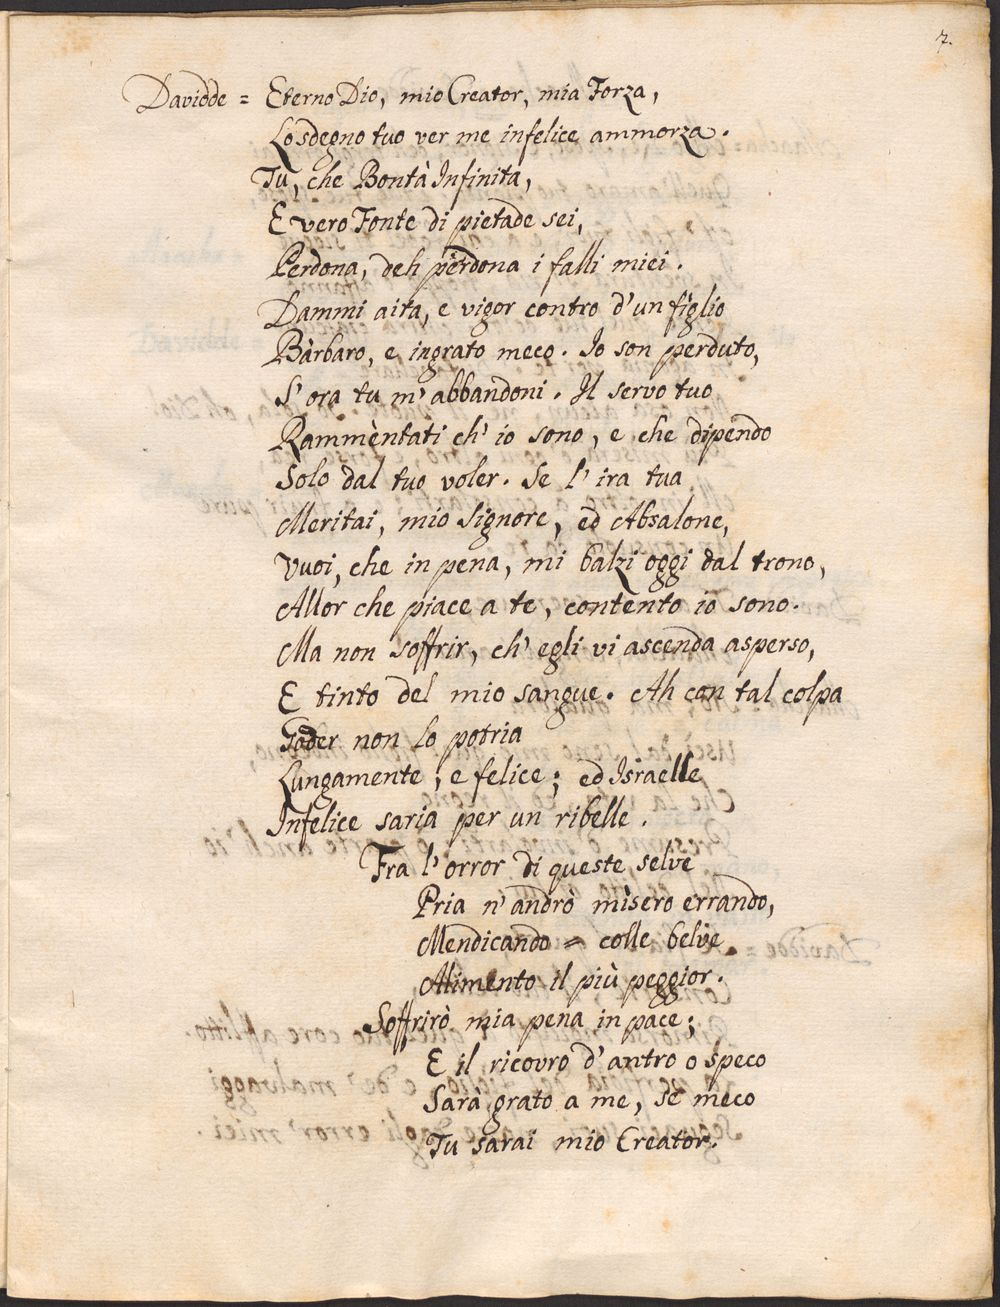 7.
Davidde = Eterno Dio, mio Creator, mia Forza,
Lo sdegno tuo ver me infelice ammorza.
Tu, che Bontà Infinita,
E vero Fonte di pietade sei,
Perdona, deh perdona i falli miei.
Dammi aita, e vigor contro d'un figlio
Bàrbaro, e ingrato meco. Io son perduto,
S'ora tu m'abbandoni. Il servo tuo
Rammèntati ch'io sono, e che dipendo
Solo dal tuo voler. Se l'ira tua
Meritai, mio Signore, ed Absalone,
Vuoi, che in pena, mi balzi oggi dal trono,
Allor che piace a te, contento io sono.
Ma non soffrir, ch'egli vi ascenda asperso,
E tinto del mio sangue. Ah con tal colpa
Goder non lo potria
Lungamente, e felice; ed Israelle
Infelice saria per un ribelle.
Fra l'orror di queste selve
Pria n'andrò mìsero errando,
Mendicando = colle belve
Alimento il più peggior.
Soffrirò mia pena in pace;
E il ricovro d'antro o speco
Sarà grato a me, se meco
Tu sarai mio Creator.